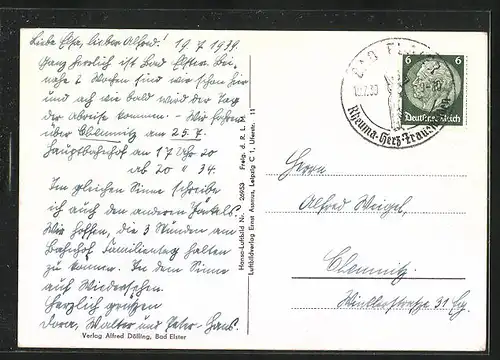 Liebe Elsa, lieber Alfred! 19.7.1939.
Ganz herrlich ist Bad Elster. Bei,
nahe 2 Wochen sind wir schon hier
und ach wie bald wird der Tag
der Abreise kommen. - Wir fahren
über Chemnitz am 25.7.
Hauptbahnhof an 17 Uhr 20
ab 20 " 34.
Im gleichen Sinne schreibe
ich auch den anderen
Wir hoffen, die 3 Stunden am
Bahnhof Familientag halten
zu können. In dem Sinne
auf Wiedersehen.
Herzlich grüßen
Dora, Walter und Peter-Hans.
Verlag Alfred Dölling, Bad Elster
Hansa-Luftbild Nr. 26933 Freig. d. R. L. M.
Luftbildverlag Ernst Leipzig C 1, 11
BAD
Rheuma-Herz-
6 6
Deutsches Reich
Herrn
Alfred Weigel,
Chemnitz.
31 Eg.